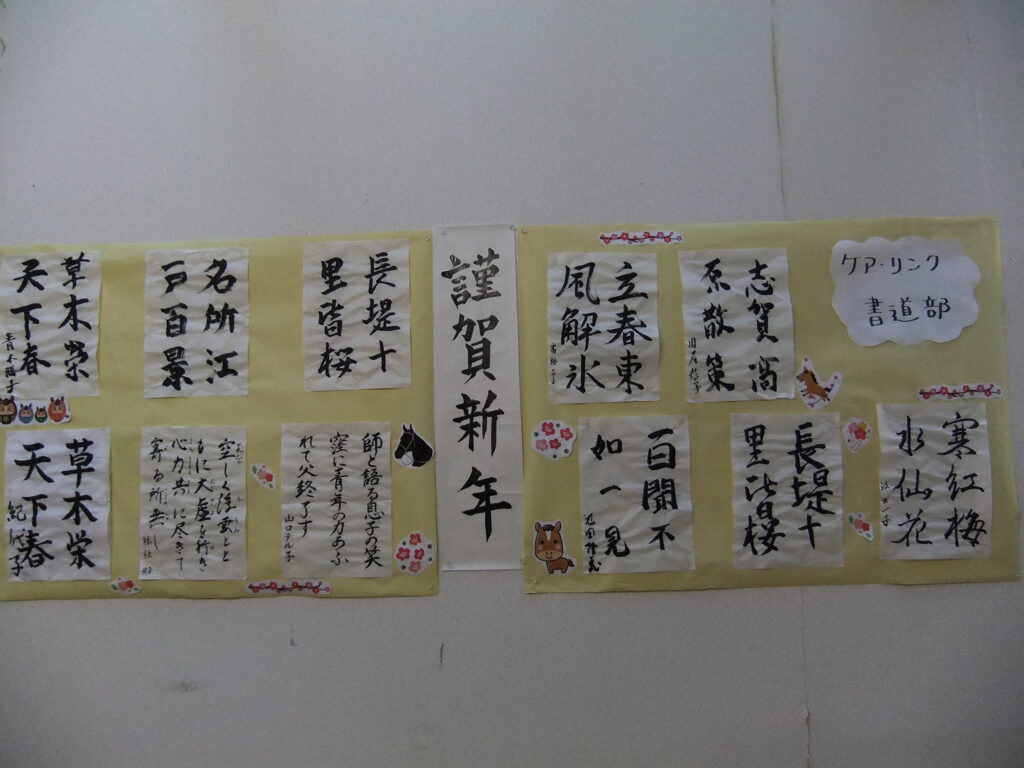 ケア・リンク
書道部
志賀高
原散策
立春東
風解氷
寒紅梅
水仙花
長堤十
里皆桜
百聞不
如一見
謹賀新年
長堤十
里皆桜
名所江
戸百景
草木榮
天下春
師と語る息子の笑
窪に青年の力あふ
れて父終了す
山口テル子
空しく浮雲とと
もに大虚を行き
心力共に尽きて
寄る所無し
草木栄
天下春
紀代子